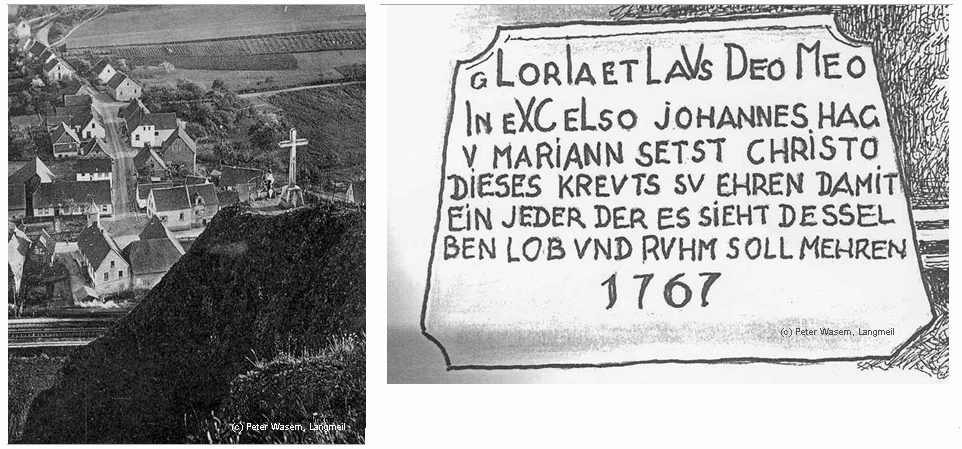 (c) Peter Wasem, Langmeil
GLorIa et LaVs Deo Meo
In eXCeLso JOHANNES HAG
V MARIANN SETST CHRISTO
DIESES KREVTS SV EHREN DAMIT
EIN JEDER DER ES SIEHT DESSEL
BEN LOB VND RVHM SOLL MEHREN
1767
(c) Peter Wasem, Langmeil